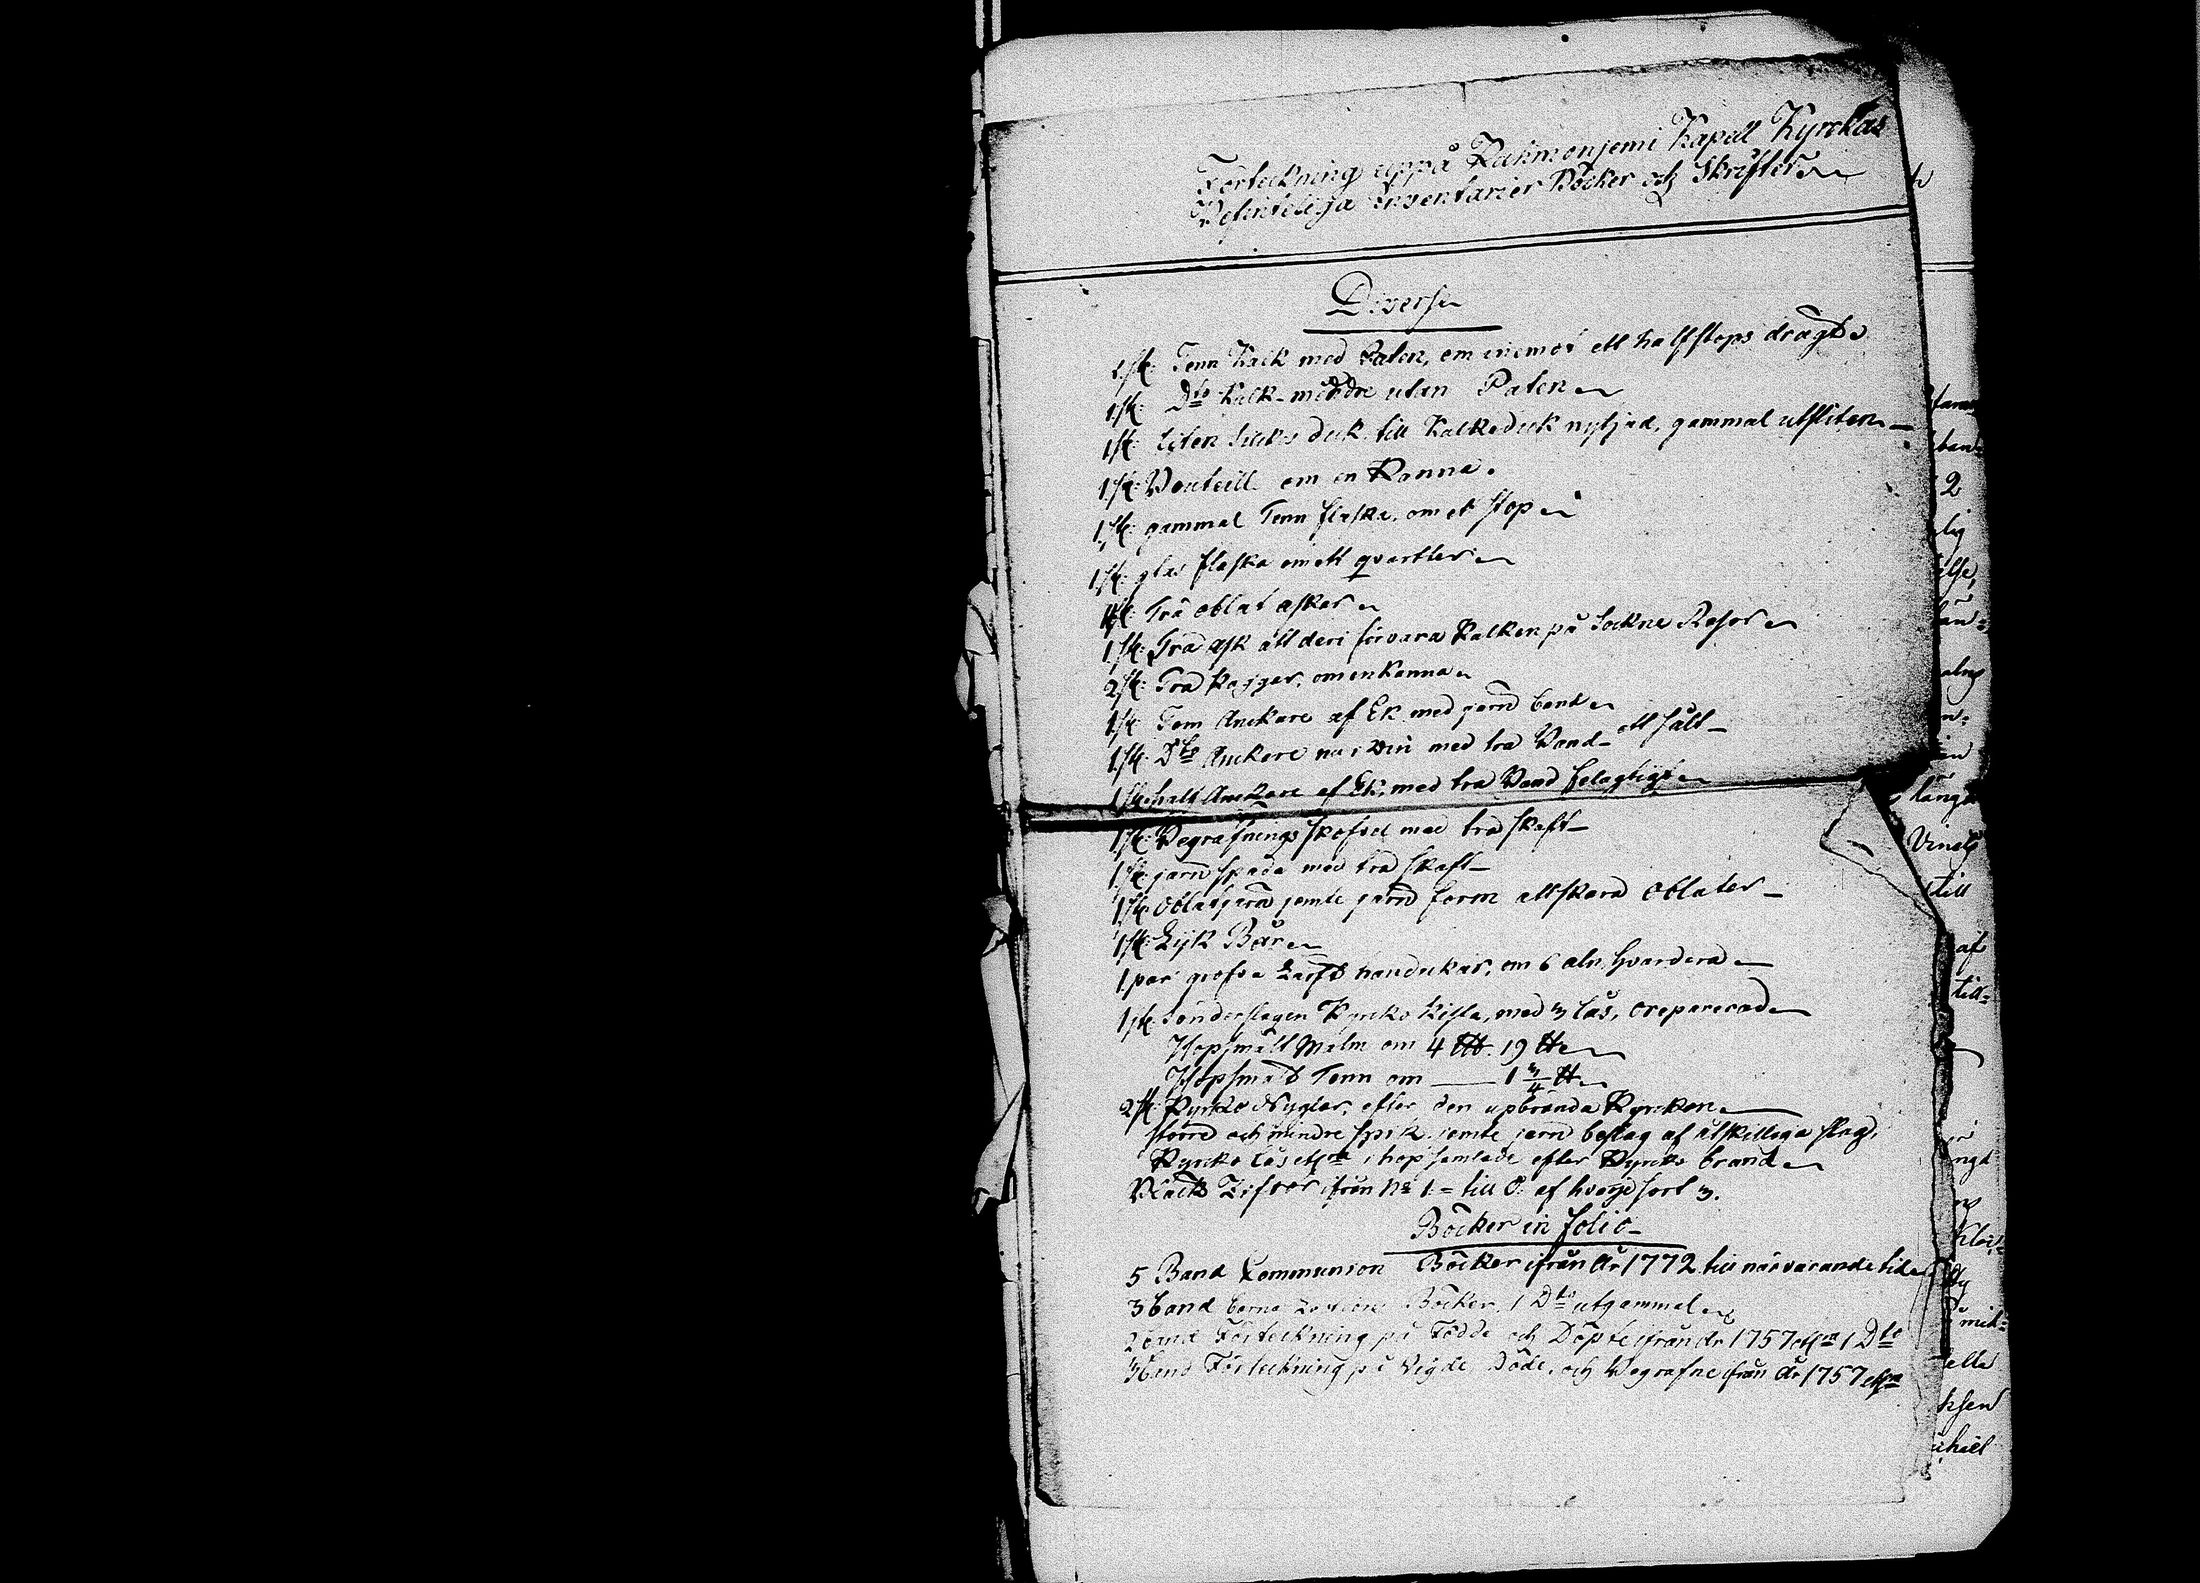 Förteckning uppå Kuhmonjemi Kapell Kyrckas
Befinteliga Inventarier Böcker och Skrifter
Diverse
1 st: Tenn Kalk med Paten, om inemot ett halfstops drägt
1 st: Dto Kalk mindre utan Paten
1 st: liten Silkes duk till Kalkeduk nyttjad, gammal utsliten
1 st: Bouteill om en Kanna.
1 st: gammal Tenn flaska, om et stop
1 st: glas flaska om ett qvarter
st: Trä oblat askar
1 st: Trä ask att deri förvara Kalken på Sockne Resor
2 st: Trä Kaggar, om en Kanna
1 st: Tom Anckare af Ek med jern band
1 st: Dto Anckare med trä Band ett fält
1 st: halft Anckare af Ek, med trä Band felagtigt
1 st: Begrafnings skofvel med trä skaft
1 st: jern spada med trä skaft
1 st: Oblatjern jemte jern form att skära Oblater
1 st: Lijk Bår
1 par grofva Larfts handukar, om 6 aln. hvardera
1 st: Sönderslagen Kyrcko Kista, med 3 lås, oreparerad
Hopsmält Malm om 4 L℔. 19 ℔
Hopsmält Tenn om 1 3/4 ℔
2 st: Kyrcko Nyglar, efter den upbrända Kyrckan
större och mindre spik jemte jern beslag af åtskilliga slag,
Kyrcko lås etc. ihop samlade efter Kyrcko brand
Bläck Zifror ifrån No 1 = till 0. af hvarje sort 3.
Böcker in folio
5 Band Communion Böcker ifrån År 1772 till närvarande tid
3 band barna Böcker, 1 Dto utgammal
2 band Förteckning på Födde och Döpte ifrån År 1757 1 Dto
3 band Förteckning på Vigde Döde, och Begrafne ifrån År 1757